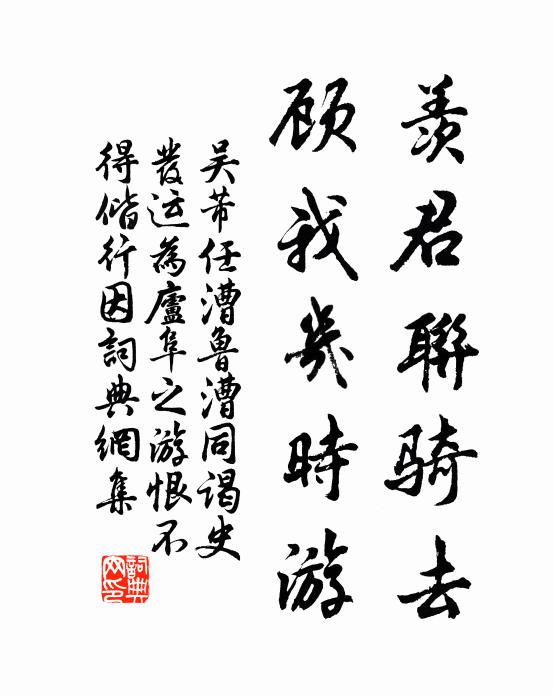 羨君聯骑去
顾我幾時游
吴芾任漕鲁漕同谒史
發运為廬阜之游恨不
得偕行因詞典網集
詞典
网印